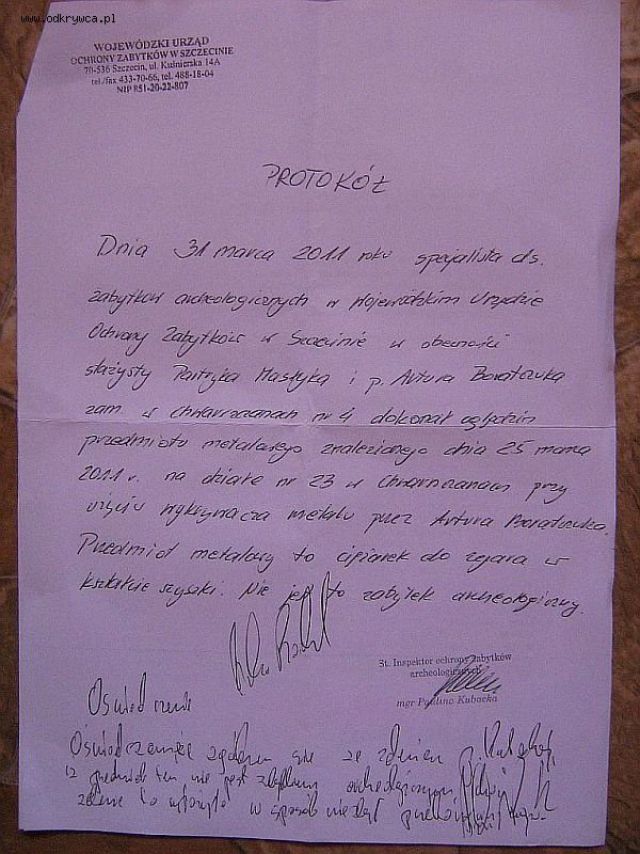 www.odkrywca.pl
WOJEWÓDZKI URZĄD
OCHRONY ZABYTKÓW W SZCZECINIE
70-536 Szczecin, ul. Kuśnierska 14A
tel./fax 433-70-66, tel. 488-18-04
NIP 851-20-22-807
PROTOKÓŁ
Dnia 31 marca 2011 roku specjalista ds.
zabytków archeologicznych w Wojewódzkim Urzędzie
Ochrony Zabytków w Szczecinie w obecności
stażysty Patryka i p. Artura
zam. w nr 4 dokonał oględzin
przedmiotu metalowego znalezionego dnia 25 marca
2011 r. na działce nr 23 w przy
użyciu wykrywacza metalu przez Artura
Przedmiot metalowy to ciężarek do zegara w
kształcie szyszki. Nie jest to zabytek archeologiczny.
St. Inspektor ochrony zabytków
archeologicznych
mgr Paulina Kubacka
Oświadczenie
Oświadczam, iż zgadzam się ze zdaniem P.
iż przedmiot ten nie jest zabytkiem archeologicznym
w sposób